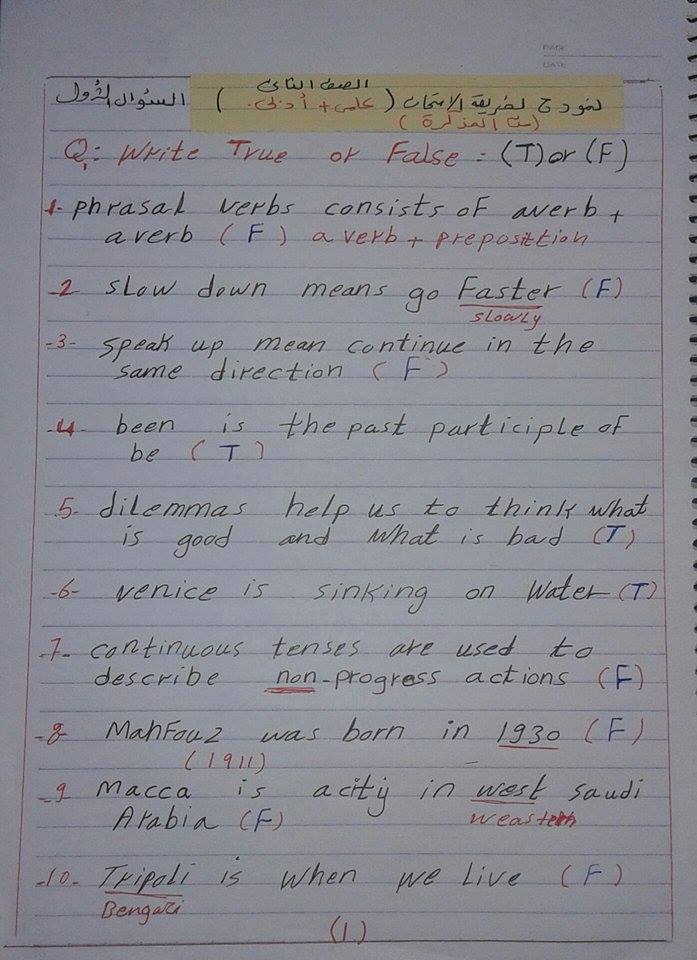 PAGE
DATE
الصف الثاني
السؤال الأول نموذج لطريقة الامتحان ( علمي + أدبي. )
( المذكرة )
Q: Write True or False : (T) or (F)
1- phrasal verbs consists of a verb +
a verb ( F ) a verb + preposition
-2 slow down means go Faster (F)
slowly
-3- speak up mean continue in the
same direction ( F )
-4- been is the past participle of
be ( T )
5- dilemmas help us to think what
is good and what is bad (T)
-6- venice is sinking on water (T)
-7- continuous tenses are used to
describe non-progress actions (F)
-8 Mahfouz was born in 1930 (F)
(1911)
-9 Macca is a city in west saudi
Arabia (F)
-10- Tripoli is when we live (F)
Bengazi
(1)